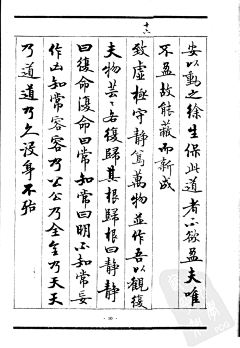 安以動之徐生保此道者不欲盈夫唯
不盈故能蔽而新成
十六
致虛極守静篤萬物並作吾以觀復
夫物芸〻各復歸其根歸根曰静静
曰復命復命曰常知常曰明不知常妄
作凶知常容容乃公公乃全全乃天天
乃道道乃久没身不殆